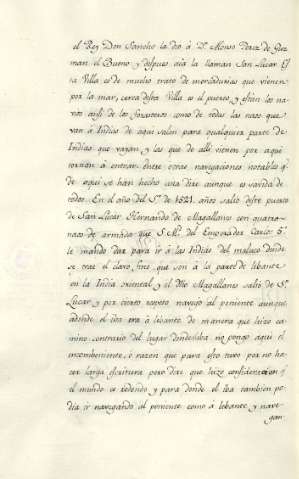 el Rey Don Sancho la dio á D. Alonso Perez de Guz
man el Bueno y despues aca la llaman San Lucar Es
ta Villa es de mucho trato de mercadurias que vienen
por la mar, cerca desta Villa es el puerto, y están las na
vios ansi de los forasteros como de todas las naos que
van á Indias de aqui salen para qualquiera parte de
Indias que vayan, y las que de allá vienen por aqui
tornan á entrar. Entre otras navegaciones notables q.e
de aqui se han hecho una diré aunque es savida de
todos. En el año del S.r de 1521. años salió deste puerto
de San Lucar Hernando de Magallanes con quatro
naos de armada que S. M.d del Emperador Carlo 5.º
le mando dar para ir á las Indias del maluco donde
se trae el clavo, que son á la parte de lebante
en la India oriental y el dho Magallanes salió de S.n
Lucar y por cierto respeto navegó al poniente aunque
adonde el iba era á lebante de manera que hizo ca
mino contrario del lugar donde iba no pongo aqui el
inconbeniente, i razon que para esto tuvo por no ha
cer larga escritura pero diré que hizo consideracion q.e
el mundo es redondo y para donde el iba tambien po
dia ir navegando al poniente como á lebante, y nave
gan